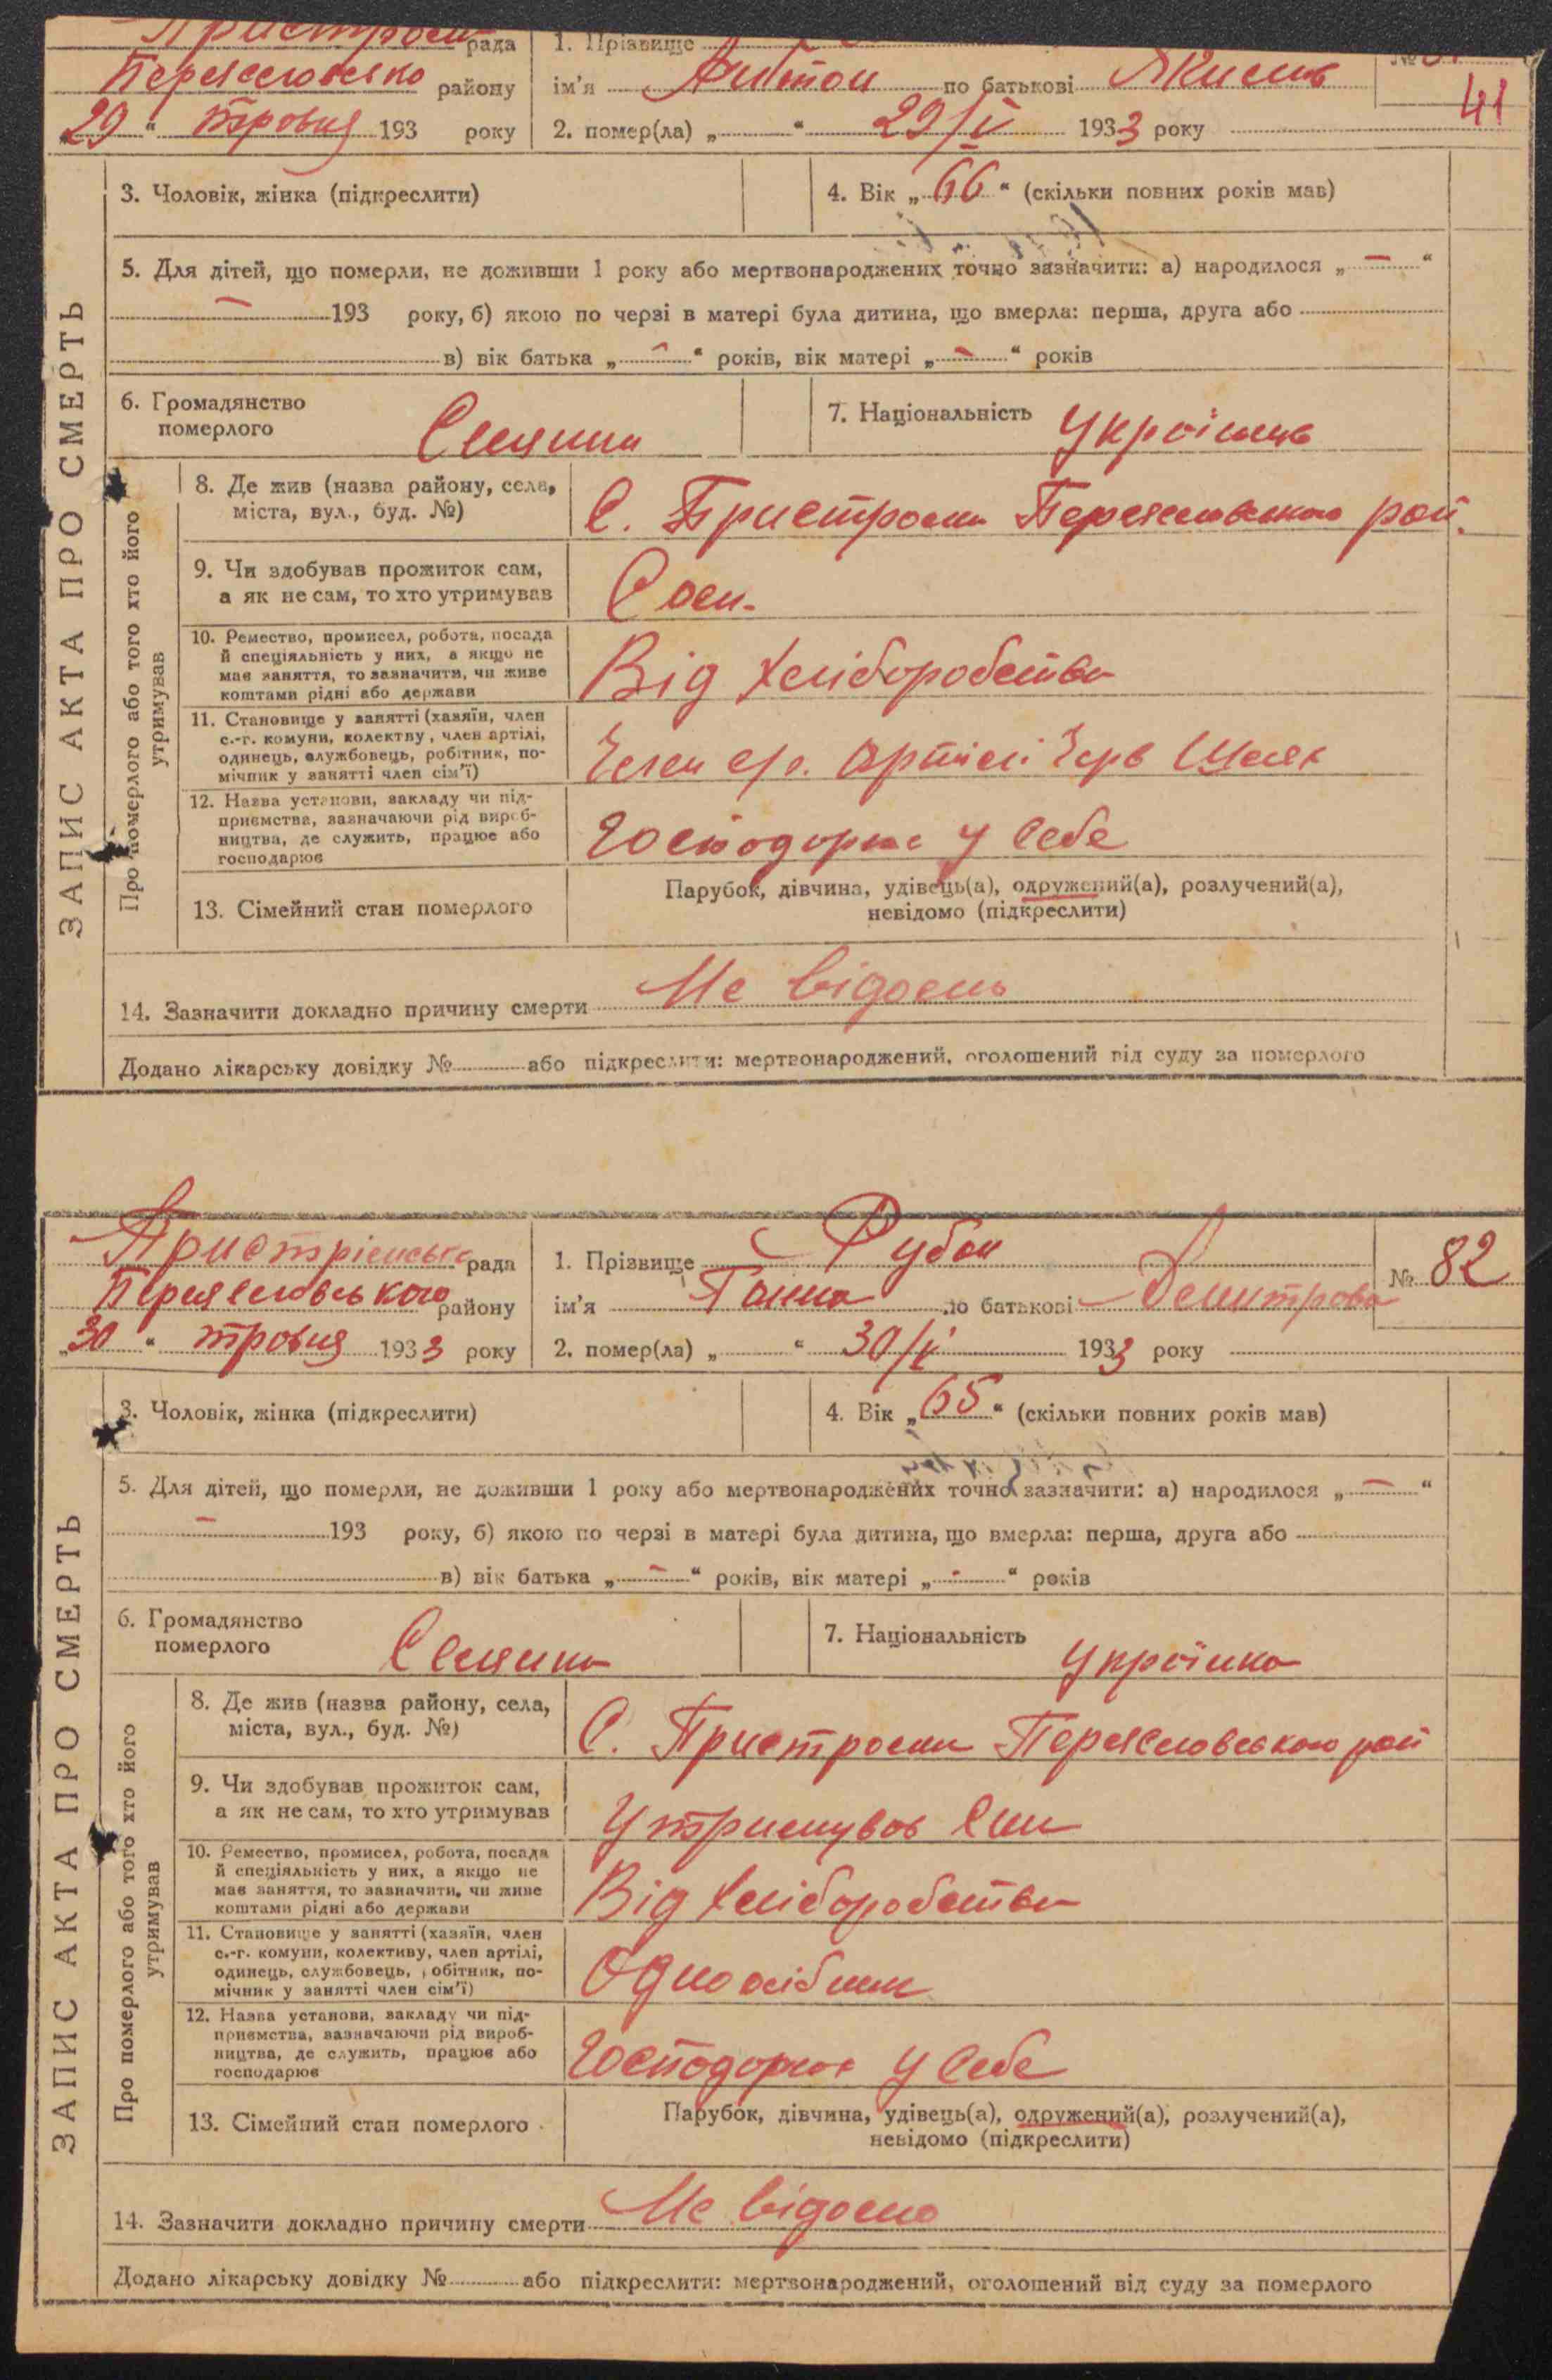 Пристром рада
Переяславсько району
„29“ травня 193 року
1. Прізвище
ім’я Антон по батькові Якимів
2. помер(ла) „ “ 29/V 1933 року
№
41
ЗАПИС АКТА ПРО СМЕРТЬ
3. Чоловік, жінка (підкреслити)
4. Вік „66“ (скільки повних років мав)
5. Для дітей, що померли, не доживши 1 року або мертвонароджених точно зазначити: а) народилося „ — “
— 193 року, б) якою по черзі в матері була дитина, що вмерла: перша, друга або
в) вік батька „ - “ років, вік матері „ - “ років
6. Громадянство
померлого
Селянин
7. Національність Українець
Про померлого або того хто його
утримував
8. Де жив (назва району, села,
міста, вул., буд. №)
С. Пристроми Переяславського рай.
9. Чи здобував прожиток сам,
а як не сам, то хто утримував
Сам.
10. Ремество, промисел, робота, посада
й спеціяльність у них, а якщо не
має заняття, то зазначити, чи живе
коштами рідні або держави
Від хліборобства
11. Становище у занятті (хазяїн, член
с.-г. комуни, колективу, член артілі,
одинець, службовець, робітник, по-
мічник у занятті член сім’ї)
Член с/г. артілі Черв Шлях
12. Назва установи, закладу чи під-
приємства, зазначаючи рід вироб-
ництва, де служить, працює або
господарює
Господарює у себе
13. Сімейний стан померлого
Парубок, дівчина, удівець(а), одружений(а), розлучений(а),
невідомо (підкреслити)
14. Зазначити докладно причину смерти Не відомо
Додано лікарську довідку № або підкреслити: мертвонароджений, оголошений від суду за померлого
Пристрімська рада
Переяславського району
„30“ травня 1933 року
1. Прізвище Рубан
ім’я Ганна по батькові Дмитрова
2. помер(ла) „ “ 30/V 1933 року
№ 82
ЗАПИС АКТА ПРО СМЕРТЬ
3. Чоловік, жінка (підкреслити)
4. Вік „65“ (скільки повних років мав)
5. Для дітей, що померли, не доживши 1 року або мертвонароджених точно зазначити: а) народилося „ — “
— 193 року, б) якою по черзі в матері була дитина, що вмерла: перша, друга або
в) вік батька „ — “ років, вік матері „ - “ років
6. Громадянство
померлого
Селянин
7. Національність Українка
Про померлого або того хто його
утримував
8. Де жив (назва району, села,
міста, вул., буд. №)
С. Пристроми Переяславського рай
9. Чи здобував прожиток сам,
а як не сам, то хто утримував
Утримував син
10. Ремество, промисел, робота, посада
й спеціяльність у них, а якщо не
має заняття, то зазначити, чи живе
коштами рідні або держави
Від хліборобства
11. Становище у занятті (хазяїн, член
с.-г. комуни, колективу, член артілі,
одинець, службовець, робітник, по-
мічник у занятті член сім’ї)
Одноосібник
12. Назва установи, закладу чи під-
приємства, зазначаючи рід вироб-
ництва, де служить, працює або
господарює
Господарює у себе
13. Сімейний стан померлого
Парубок, дівчина, удівець(а), одружений(а), розлучений(а),
невідомо (підкреслити)
14. Зазначити докладно причину смерти Не відомо
Додано лікарську довідку № або підкреслити: мертвонароджений, оголошений від суду за померлого